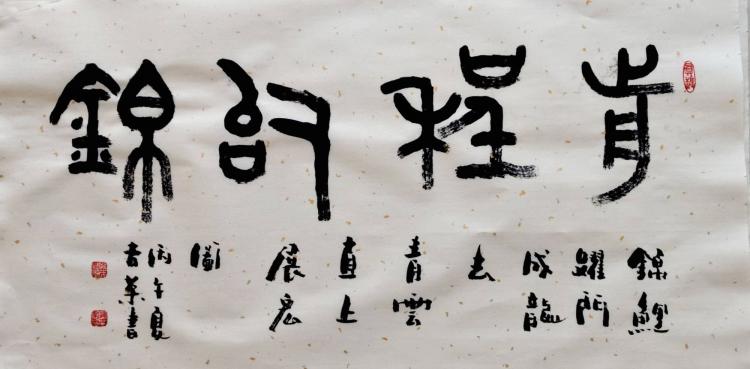 前程似錦
錦鯉
躍門
成龍
去
青雲
直上
展宏
圖
丙午夏
書